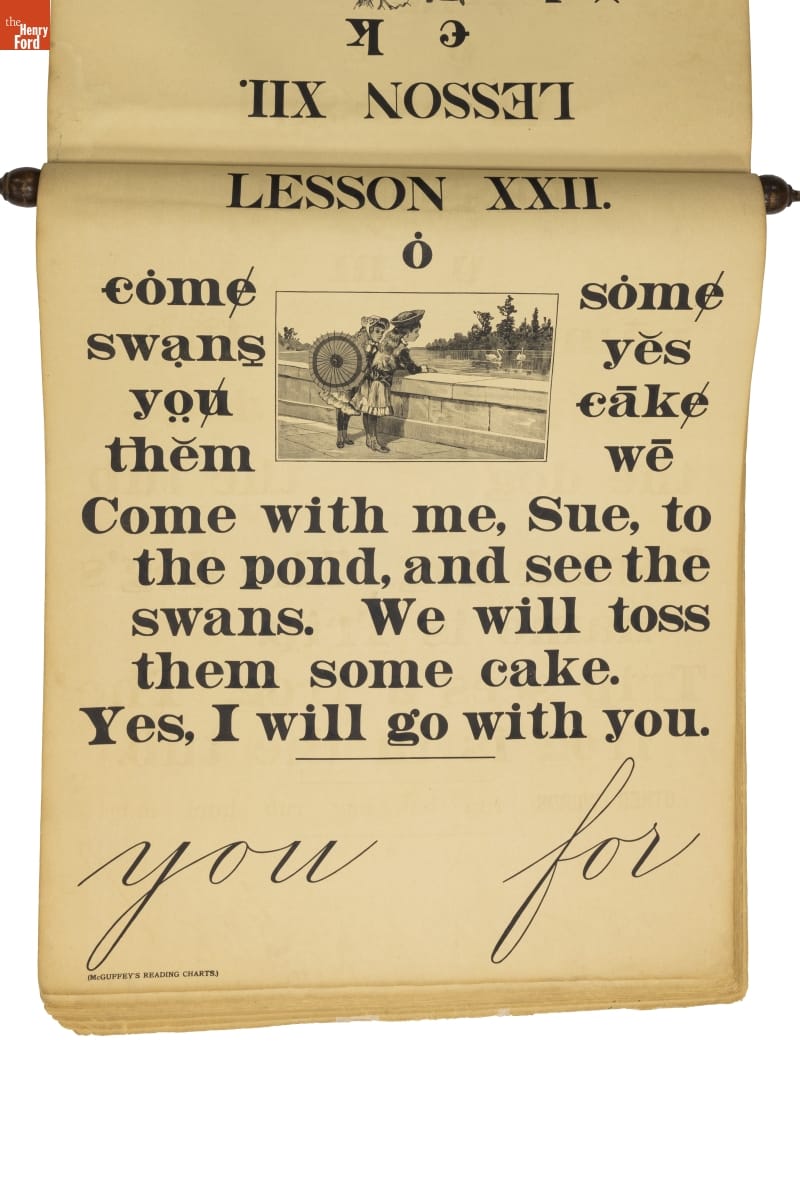 the
Henry
Ford
ꞓ k
LESSON XII.
LESSON XXII.
ȯ
ꞓȯme̸ sȯme̸
swạnṣ̱ yĕs
yo̤u̸ ꞓāke̸
thĕm wē
Come with me, Sue, to
the pond, and see the
swans. We will toss
them some cake.
Yes, I will go with you.
you for
(McGUFFEY'S READING CHARTS.)